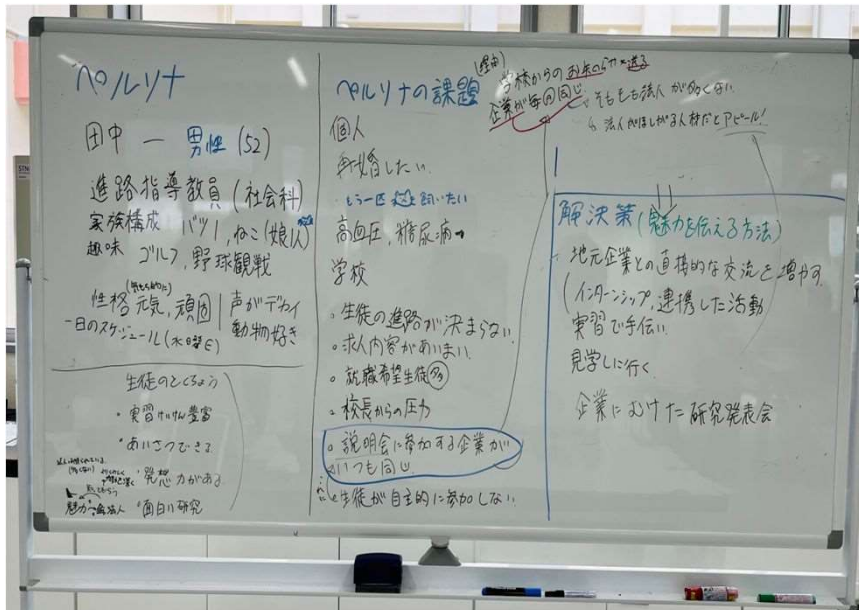 ペルソナ
田中 一 男性 (52)
進路指導教員 (社会科)
家族構成 バツ1, ねこ (娘1人)
趣味 ゴルフ, 野球観戦
性格 元気, 頑固 声がデカイ
動物好き
一日のスケジュール (水曜日)
生徒のとくちょう
・実習けいけん豊富
・あいさつできる
・発想力がある
・面白い研究
ペルソナの課題
個人
再婚したい
もう一匹 飼いたい
高血圧, 糖尿病
学校
・生徒の進路が決まらない
・求人内容があいまい
・就職希望生徒 多
・校長からの圧力
・説明会に参加する企業が
いつも同じ
・生徒が自主的に参加しない
(理由)
学校からのお知らせを送る
企業が毎回同じ
そもそも法人が多くない
↳ 法人がほしがる人材だとアピール!
解決策 (魅力を伝える方法)
地元企業との直接的な交流を増やす
(インターンシップ, 連携した活動
実習で手伝い
見学しに行く
企業にむけた研究発表会